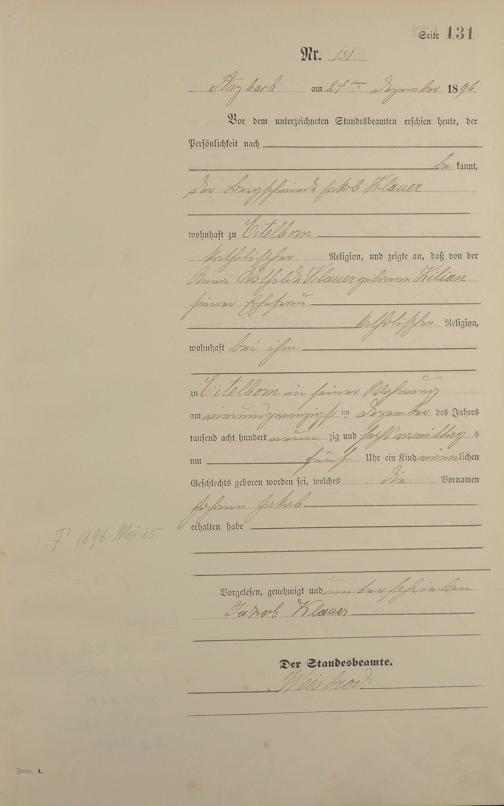 Seite 131
Nr. 131
Arzbach am 27ten Dezember 1896
Vor dem unterzeichneten Standesbeamten erschien heute, der
Persönlichkeit nach
bekannt,
der Bergschmied Jakob Klauer
wohnhaft zu Eitelborn
katholischer Religion, und zeigte an, daß von der
Anna Klauer geborene Kilian
seiner Ehefrau
katholischer Religion,
wohnhaft bei ihm
zu Eitelborn in seiner Wohnung
am vierundzwanzigsten Dezember des Jahres
tausend acht hundert neunzig und sechs Vormittags
um fünf Uhr ein Kind männlichen
Geschlechts geboren worden sei, welches die Vornamen
Johann Jakob
erhalten habe
† 1898 Mai 25
Vorgelesen, genehmigt und unterschrieben
Jakob Klauer
Der Standesbeamte.
Weisbrod
Form. A.